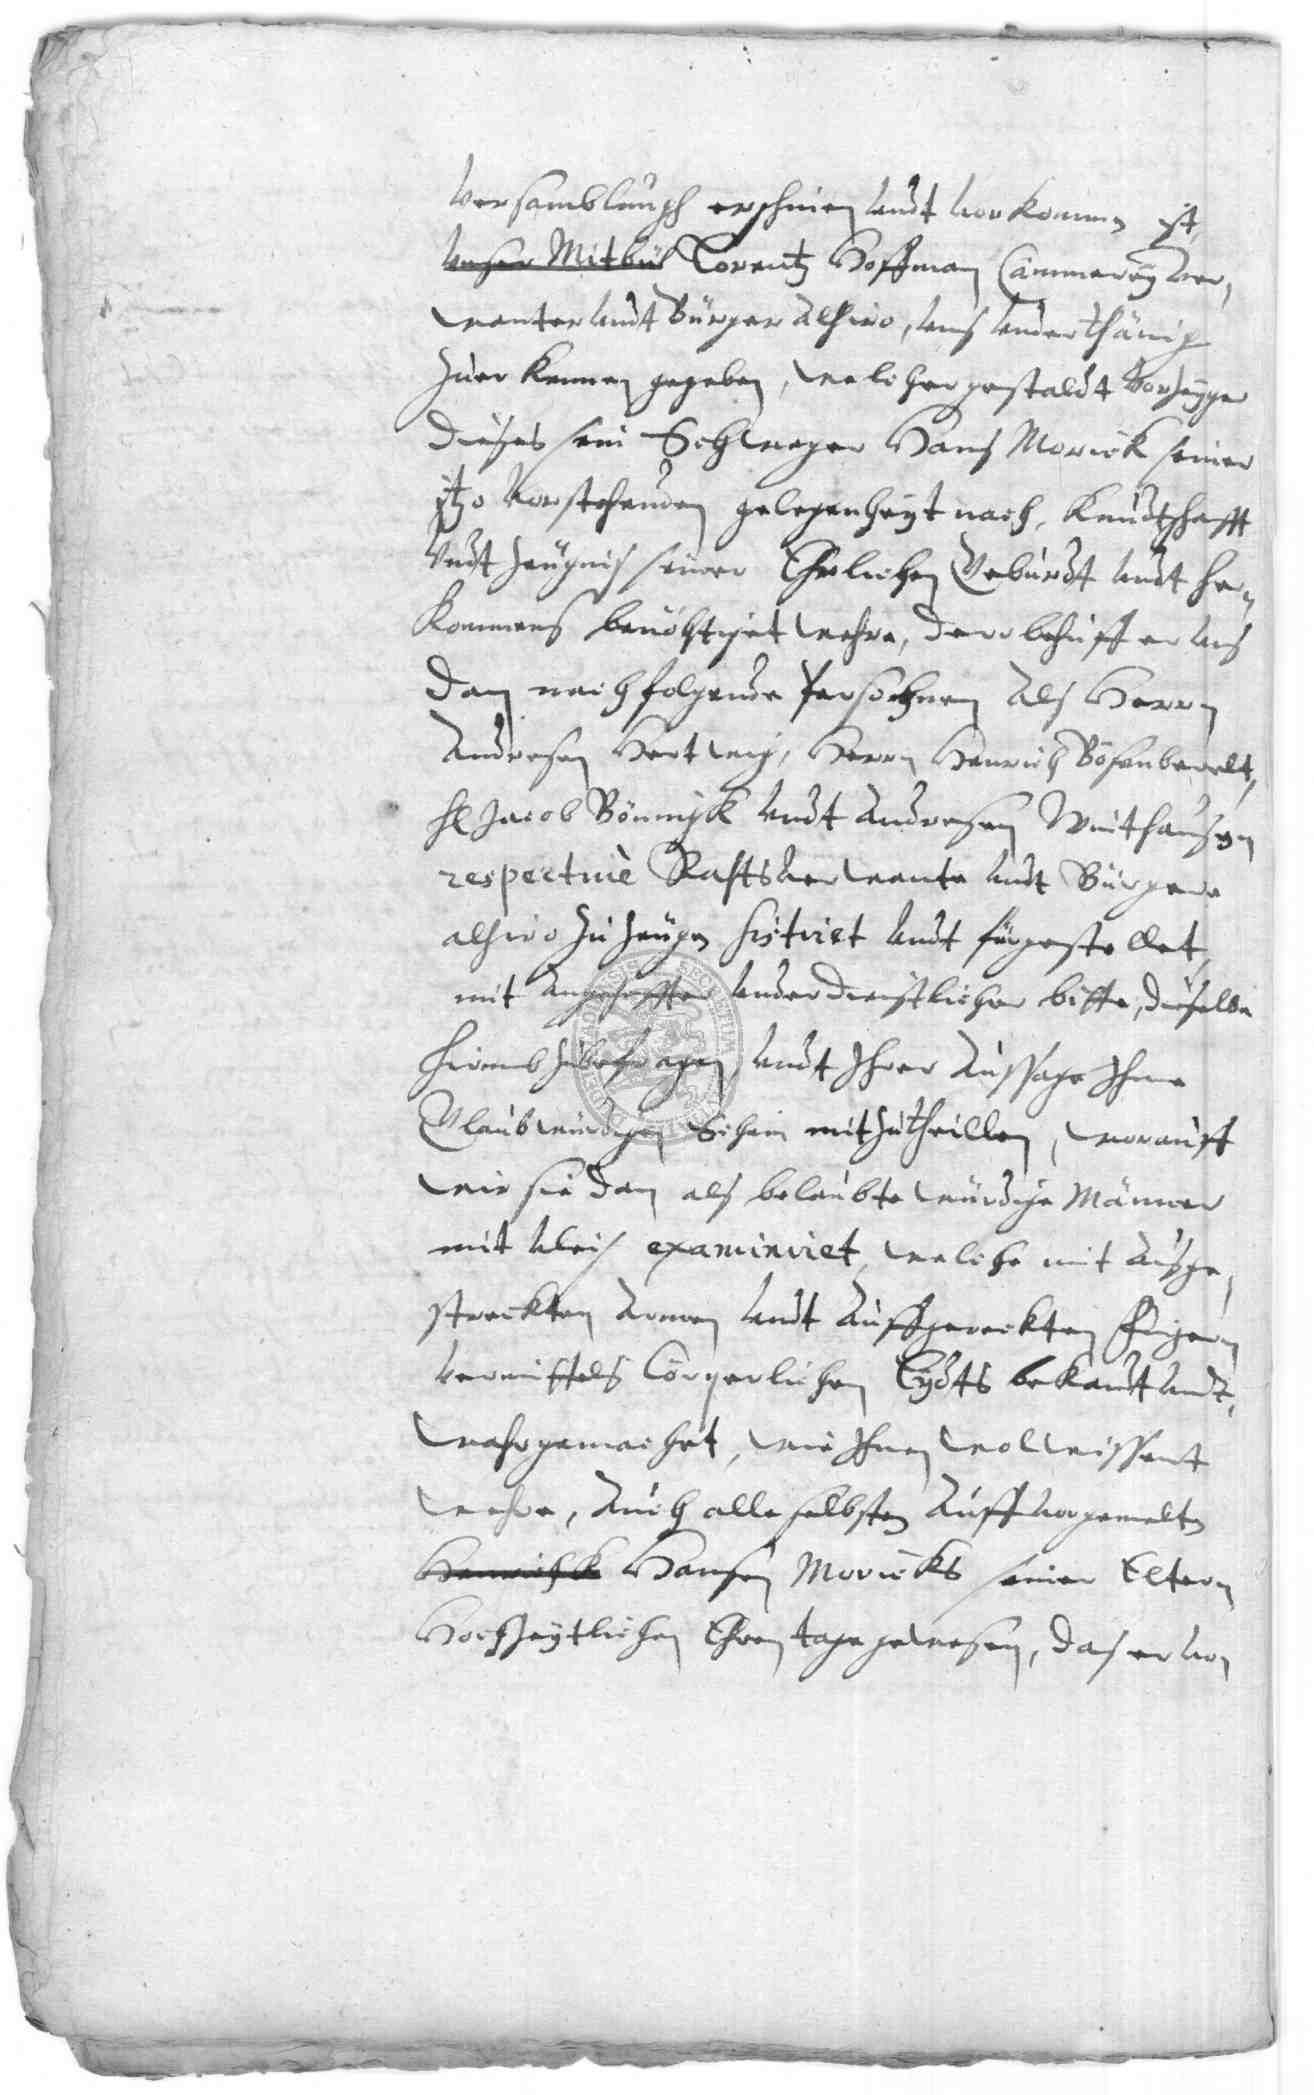 versamblungh erschinen undt vorkommen ist,
unser Mitbür Lorentz Hoffman Cämmereÿ ver,
wanter undt Bürger alhiro, uns underthänig
zuer kennen gegeben, welicher gestaldt vorzeÿger
dieses sein Schwager Hans Morick seiner
itzo vorstehenden gelegenheÿt nach, Kundtschafft
undt zeügnis seiner Ehrlichen Geburdt undt her,
kommens benöhtiget wehre, dero behuff er uns
dan nachfolgende Persohnen als Herrn
Andresen Hertwig, Herrn Henrich Bösenberelt,
H Jacob Bönnigk undt Andresen Withausen
respectivè Rahtsverwante undt Bürgere
alhiro zu zeügen sistiret undt fürgestellet,
mit angehoffter underdienstlicher bitte, dieselbe
hirumb zubefragen, undt Ihrer Aussage Ihme
Glaubwürdigen Schein mitzutheillen, worauff
wir sie dan als belaubte würdige Männer
mit vleis examiniret, weliche mit ausge,
streckten Armen undt auffgereckten fingern
vermittels Cörperlichen Eÿdts bekandt undt,
wahrgemachet, wie Ihnen wol wissent
wehre, auch alle selbsten auff vorgemelten
Henrichk Hansen Moricks seiner Eltern
Hochzeÿtlichen Ehren tage gewesen, das er von